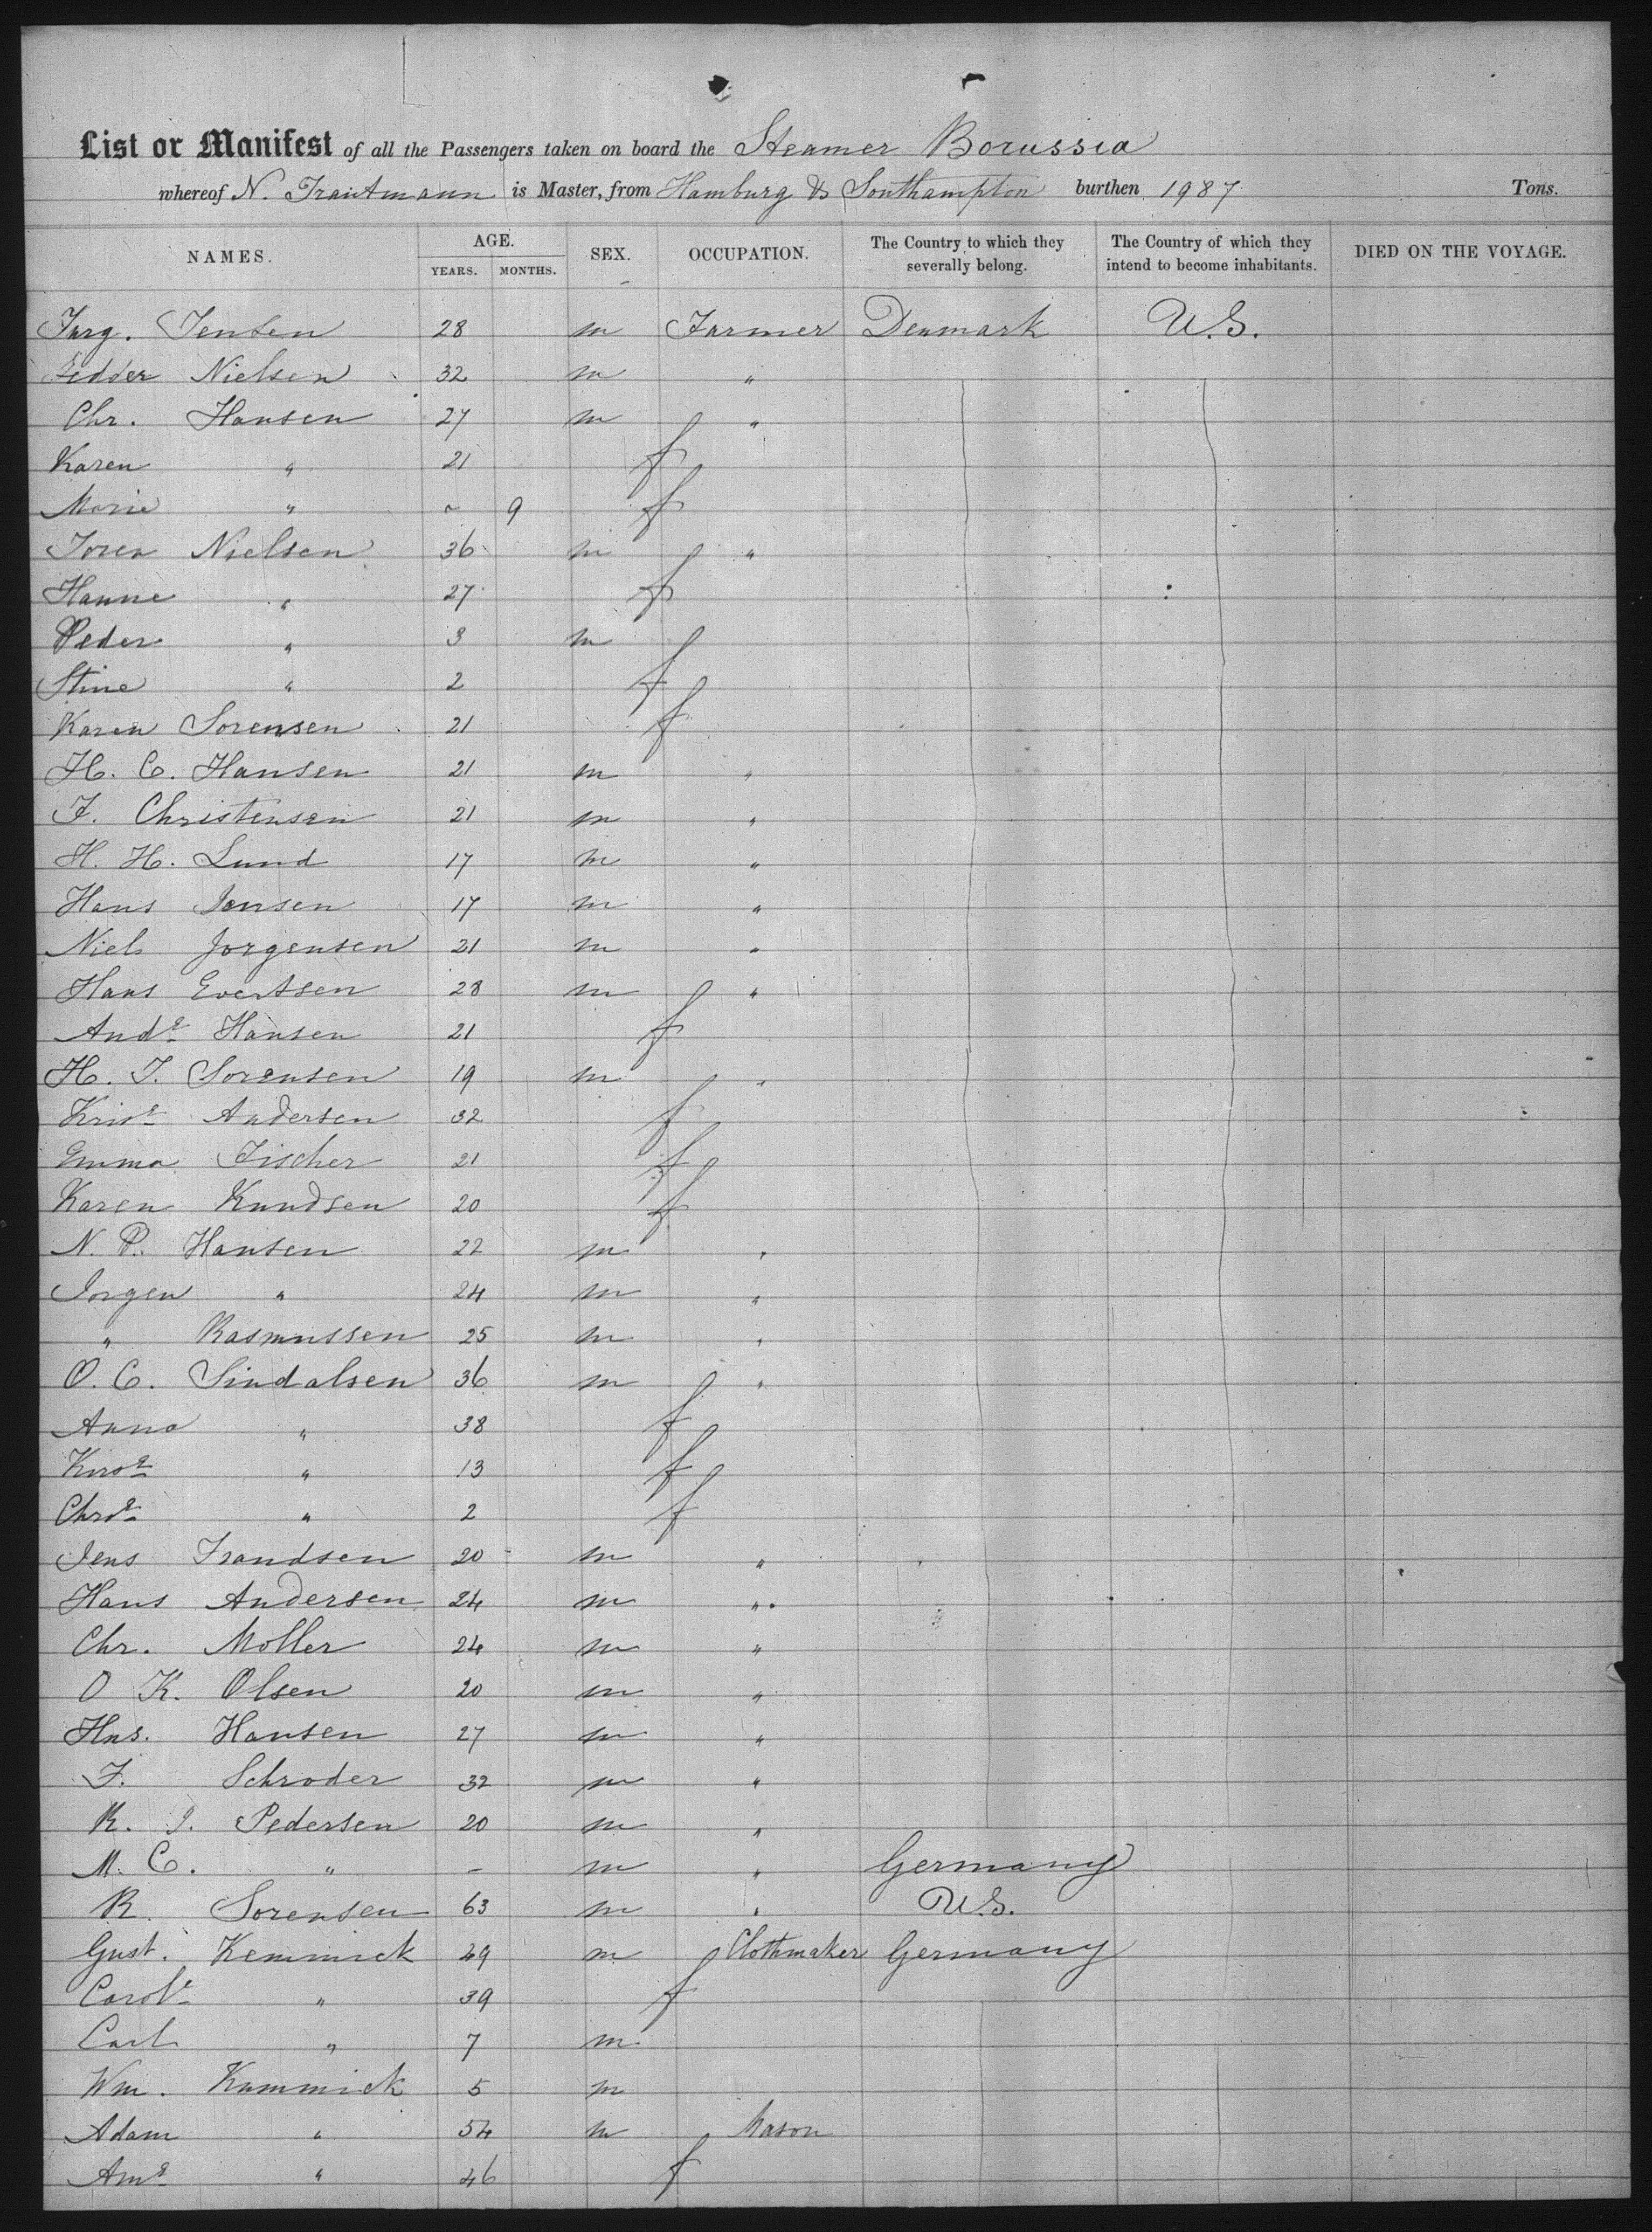 List or Manifest of all the Passengers taken on board the Steamer Borussia
whereof N. Trautmann is Master, from Hamburg & Southampton burthen 1987 Tons.
NAMES. AGE. SEX. OCCUPATION. The Country to which they severally belong. The Country of which they intend to become inhabitants. DIED ON THE VOYAGE.
YEARS. MONTHS.
Jurg. Jensen 28 m Farmer Denmark U.S.
Fedder Nielsen 32 m "
Chr. Hansen 27 m "
Karen " 21 f
Marie " - 9 f
Soren Nielsen 36 m "
Hanne " 27 f
Peder " 3 m
Stine " 2 f
Karen Sorensen 21 f
H. C. Hansen 21 m "
F. Christensen 21 m "
H. H. Lund 17 m "
Hans Jansen 17 m "
Niels Jorgensen 21 m "
Hans Evertsen 28 m "
Andᵉ Hansen 21 f
H. J. Sorensen 19 m "
Krisᵉ Andersen 32 f
Emma Fischer 21 f
Karen Knudsen 20 f
N. P. Hansen 22 m "
Jorgen " 24 m "
" Rasmussen 25 m "
O. C. Sindalsen 36 m "
Anna " 38 f
Kirsᵉ " 13 f
Chrsᵉ " 2 f
Jens Frandsen 20 m "
Hans Andersen 24 m "
Chr. Moller 24 m "
O K. Olsen 20 m "
Hns. Hansen 27 m "
F. Schroder 32 m "
K. J. Pedersen 20 m "
M. C. " - m " Germany
R. Sorensen 63 m " U.S.
Gust. Kemmick 49 m Clothmaker Germany
Carolᵉ " 39 f
Carl " 7 m
Wm. Kummick 5 m
Adam " 54 m Mason
Amᵉ " 46 f